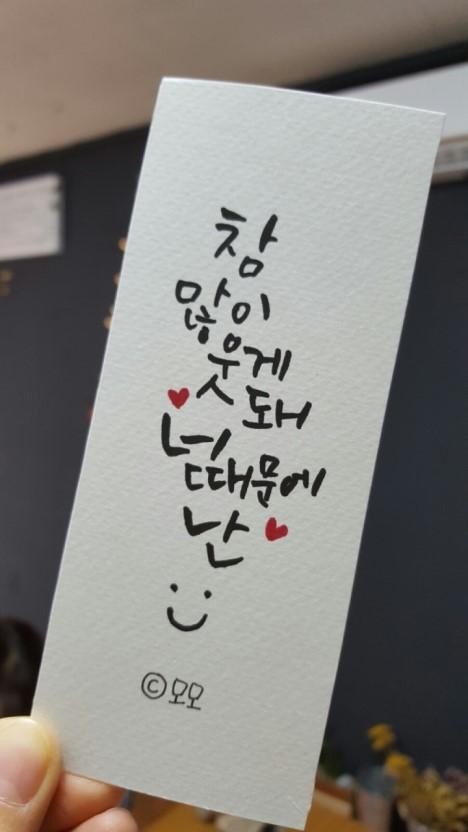 참
많이
웃게
돼
너
때문에
난
© 모모